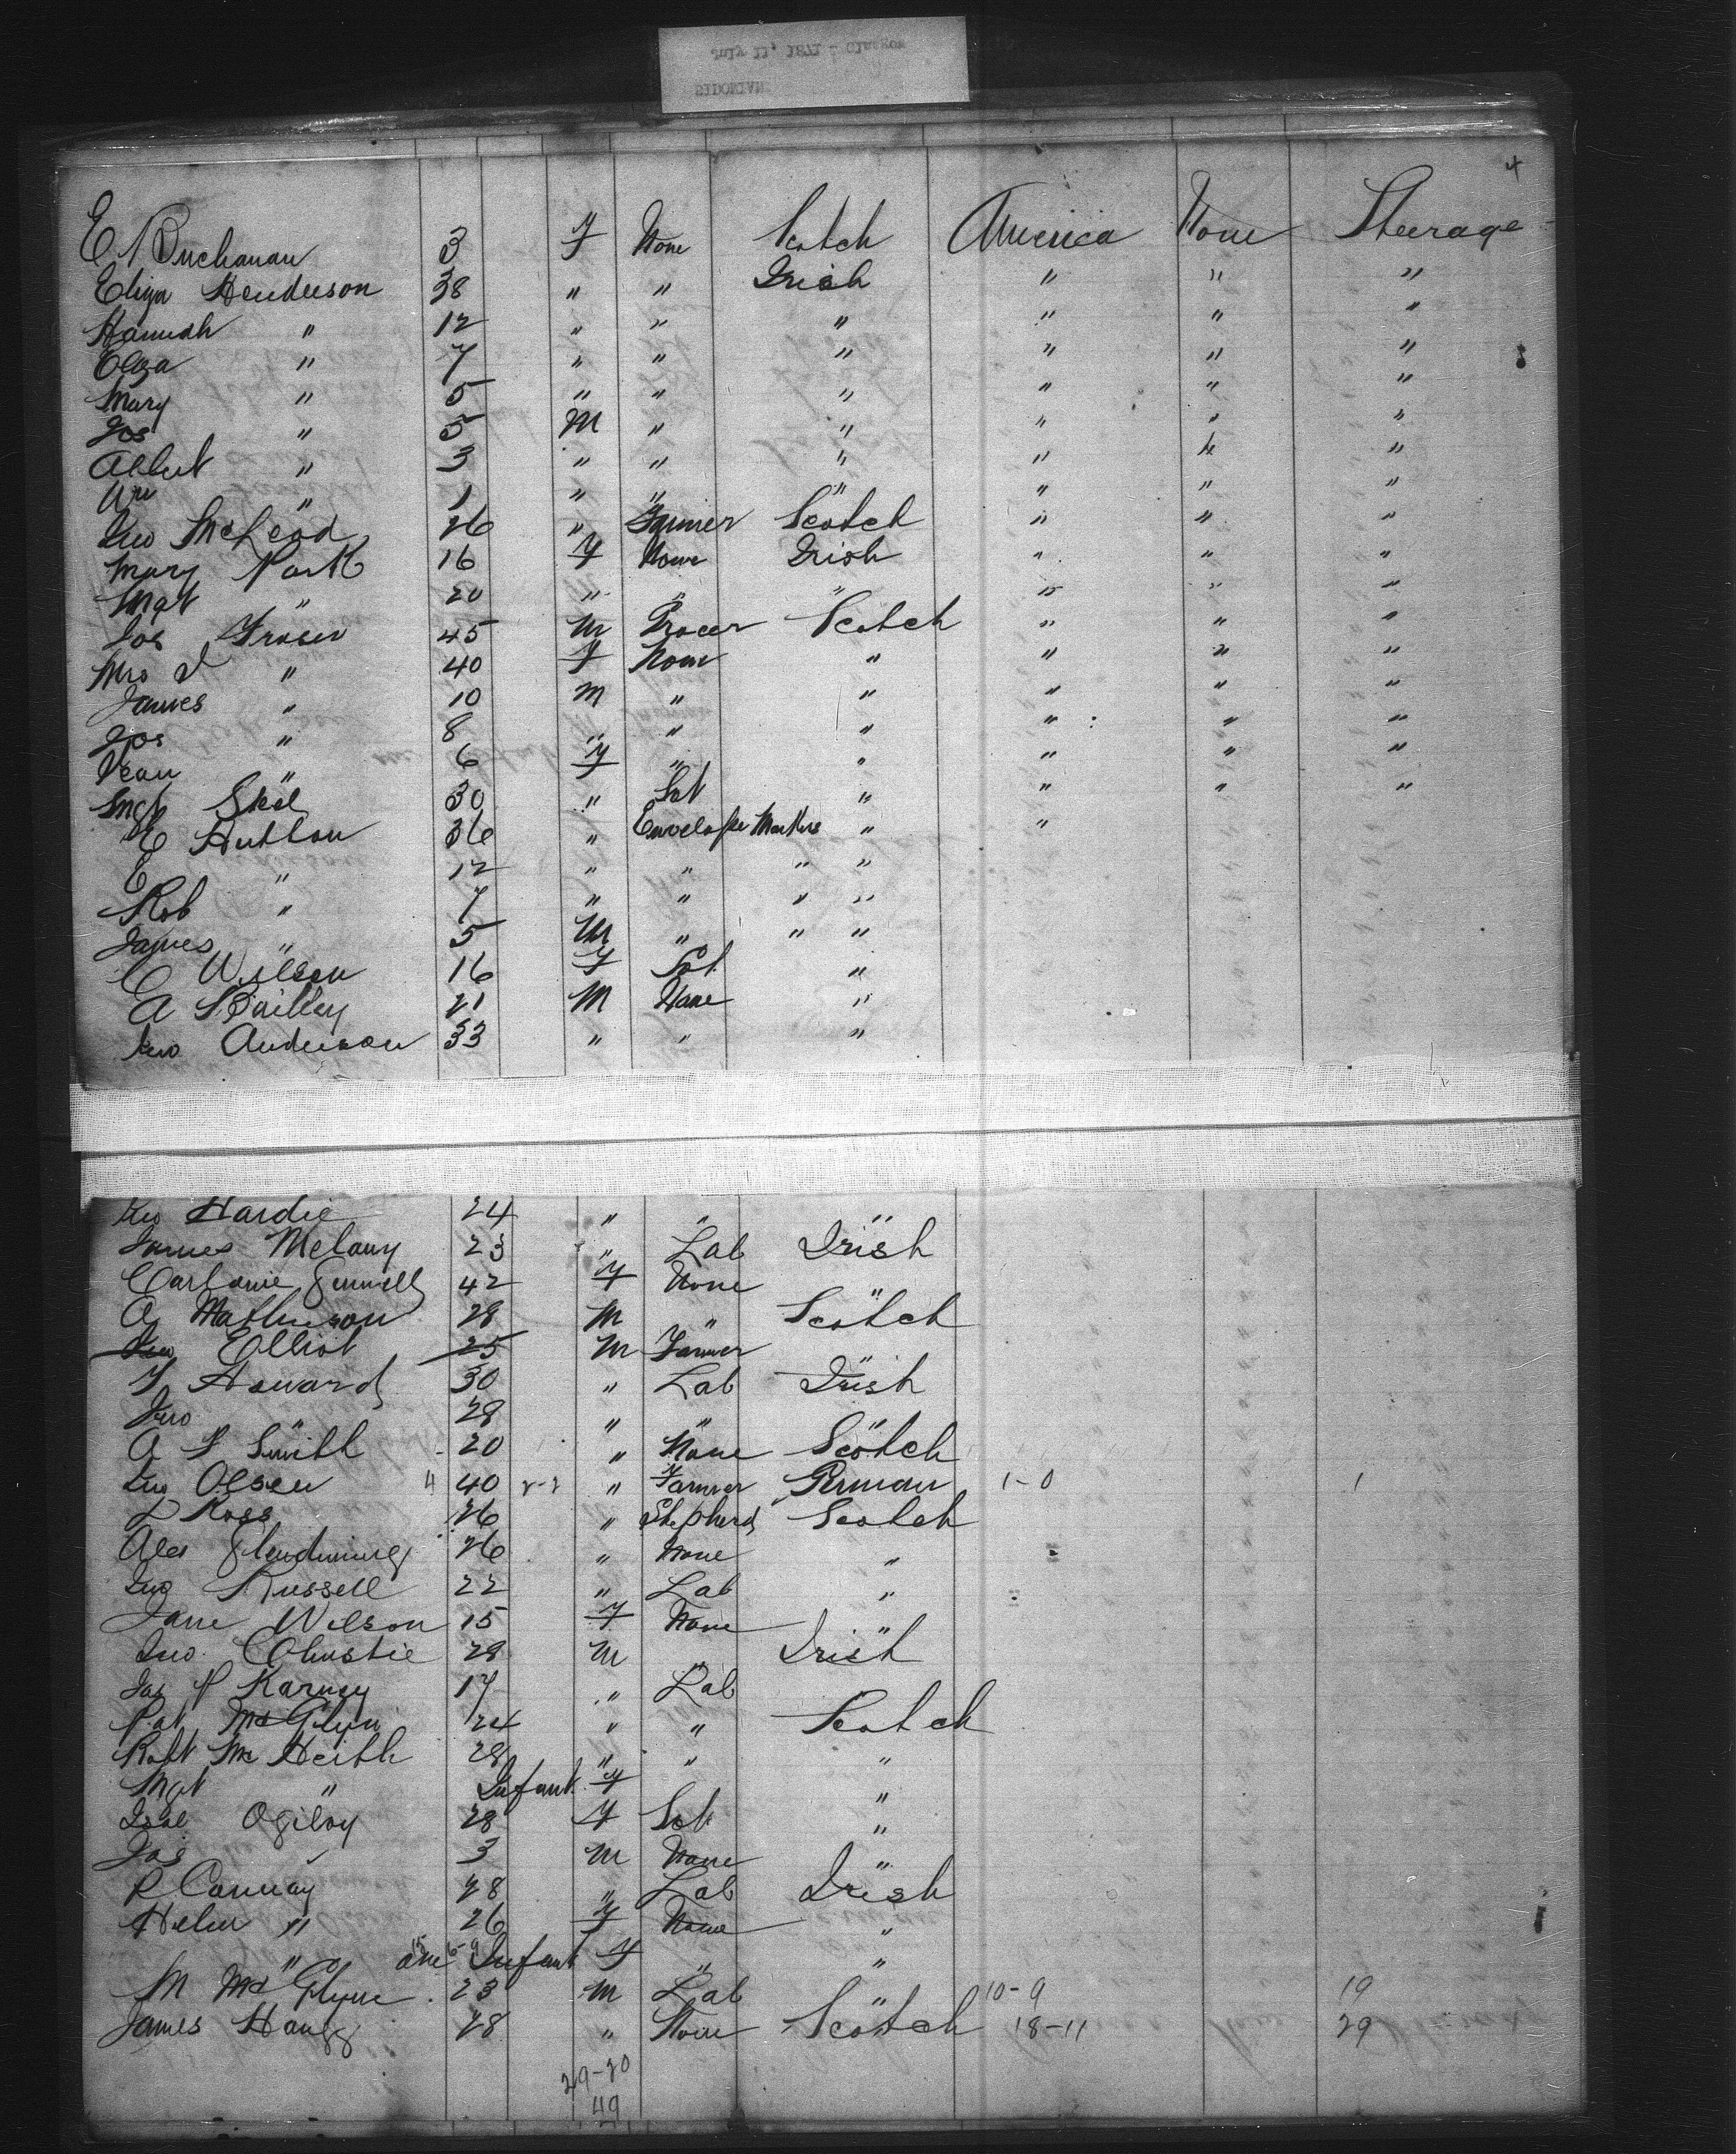 4
E Buchanan 3 F None Scotch America None Steerage
Eliza Henderson 38 " " Irish " " "
Hannah " 12 " " " " " "
Eliza " 7 " " " " " "
Mary " 5 " " " " " "
Jos " 5 M " " " " "
Albert " 3 " " " " " "
Wm " 1 " " " " " "
Jno McLeod 26 " Farmer Scotch " " "
Mary Park 16 F None Irish " " "
Mgt " 20 " " " " " "
Jos Fraser 45 M Grocer Scotch " " "
Mrs J " 40 F None " " " "
James " 10 M " " " " "
Jos " 8 " " " " " "
Jean " 6 F " " " " "
Mgt Steel 30 " " " " "
E Hutton 36 " Envelope Makers " "
E " 12 " " " "
Rob " 7 " " " "
James " 5 M " " "
E Wilson 16 F "
A Bailley 21 M None "
Jno Anderson 33 " " "
Jno Hardie 24 " " "
James Melany 23 " Lab Irish
42 F None "
A Mathieson 28 M " Scotch
Jno Elliot 25 M Farmer "
F Howard 30 " Lab Irish
Jno " 28 " " "
A F Smith 20 " None Scotch
Jno Olsen 40 " Farmer German 1-0 1
D Ross 26 " Shepherd Scotch
Alex Glendinning 26 " None "
Jno Russell 22 " Lab "
Jane Wilson 15 F None "
Jno Christie 28 M " Irish
Jas P Karney 17 " Lab "
Pat McGlyn 24 " " Scotch
Robt Mc Heith 28 " " "
Mgt " Infant F "
Isbl Ogilvy 28 F "
Jas " 3 M None "
P Conway 28 " Lab Irish
Helen " 26 F None "
" one Infant F " "
M McGlynn 23 M Lab " 10-9 19
James Hougg 28 " None Scotch 18-11 29
29-20
49